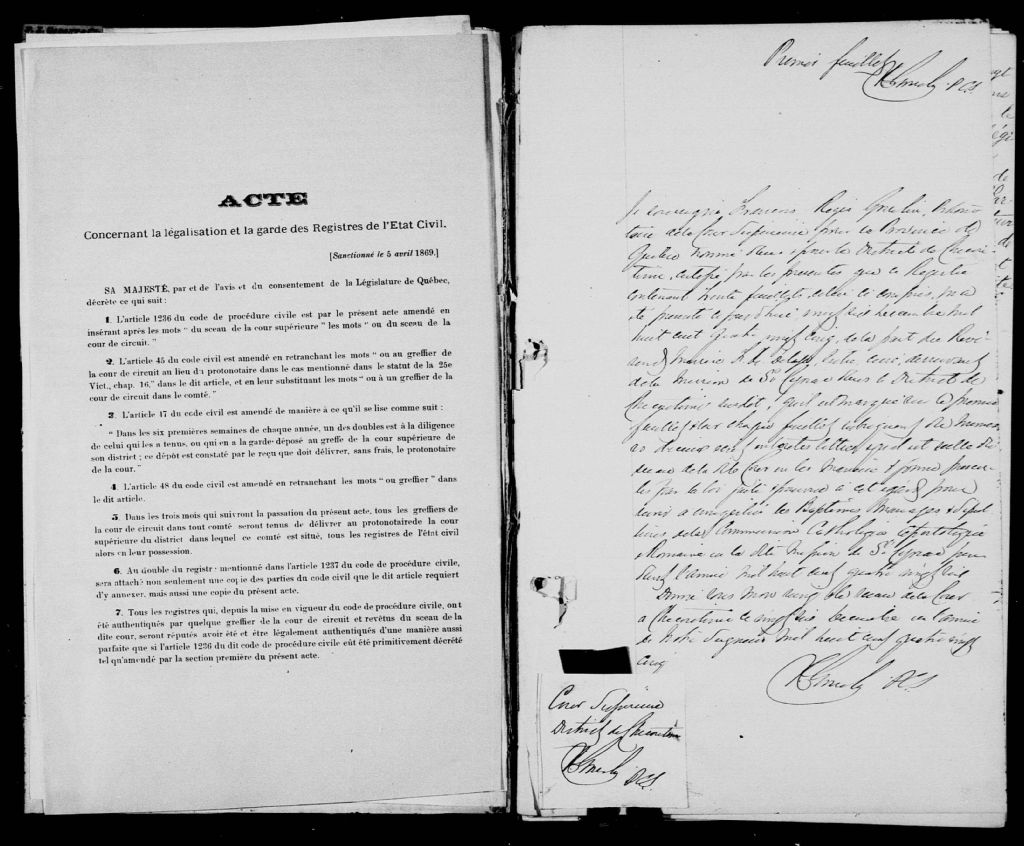 ACTE
Concernant la légalisation et la garde des Registres de l'Etat Civil.
[Sanctionné le 5 avril 1869.]
SA MAJESTÉ, par et de l'avis et du consentement de la Législature de Québec,
décrète ce qui suit :
1. L'article 1236 du code de procédure civile est par le présent acte amendé en
insérant après les mots " du sceau de la cour supérieure " les mots " ou du sceau de la
cour de circuit. "
2. L'article 45 du code civil est amendé en retranchant les mots " ou au greffier de
la cour de circuit au lieu du protonotaire dans le cas mentionné dans le statut de la 25e
Vict., chap. 16," dans le dit article, et en leur substituant les mots " ou à un greffier de la
cour de circuit dans le comté. "
3. L'article 47 du code civil est amendé de manière à ce qu'il se lise comme suit :
" Dans les six premières semaines de chaque année, un des doubles est à la diligence
de celui qui les a tenus, ou qui en a la garde déposé au greffe de la cour supérieure de
son district ; ce dépôt est constaté par le reçu que doit délivrer, sans frais, le protonotaire
de la cour. "
4. L'article 48 du code civil est amendé en retranchant les mots " ou greffier " dans
le dit article.
5. Dans les trois mois qui suivront la passation du présent acte, tous les greffiers de
la cour de circuit dans tout comté seront tenus de délivrer au protonotaire de la cour
supérieure du district dans lequel ce comté est situé, tous les registres de l'état civil
alors en leur possession.
6. Au double du registre mentionné dans l'article 1237 du code de procédure civile,
sera attaché non seulement une copie des parties du code civil que le dit article requiert
d'y annexer, mais aussi une copie du présent acte.
7. Tous les registres qui, depuis la mise en vigueur du code de procédure civile, ont
été authentiqués par quelque greffier de la cour de circuit et revêtus du sceau de la
dite cour, seront réputés avoir été et être légalement authentiqués d'une manière aussi
parfaite que si l'article 1236 du dit code de procédure civile eût été primitivement décrété
tel qu'amendé par la section première du présent acte.
Premier feuillet
PCS
Je soussigné, Francois Régis Gosselin, Protono
taire de la Cour Supérieure pour la Province de
Québec nommé pour le District de Chicou
timi, certifie par les présentes que ce Registre
contenant trente feuillets celui ci compris, m'a
été présenté ce jourd'hui vingt six décembre mil
huit cent quatre vingt cinq, de la part du Révé
rend Messire curé, desservant
de la mission de St Cyriac dans le District de
Chicoutimi susdit, qu'il est marqué sur le premier
feuillet & sur chaque feuillet subséquent du numé
ro en toutes lettres & qu'il est scellé du
sceau de la dite Cour en la manière & forme prescri
tes par la loi faite & pourvue à cet égard pour
servir à enregistrer les Baptêmes, Mariages & Sépul
tures de la Communion Catholique Apostolique
& Romaine en la dite mission de St Cyriac pen
dant l'année mil huit cent quatre vingt six
Donné sous mon seing & le sceau de la Cour
à Chicoutimi le vingt six décembre en l'année
de Notre Seigneur mil huit cent quatre vingt
cinq
PCS
Cour Supérieure
District de Chicoutimi
PCS